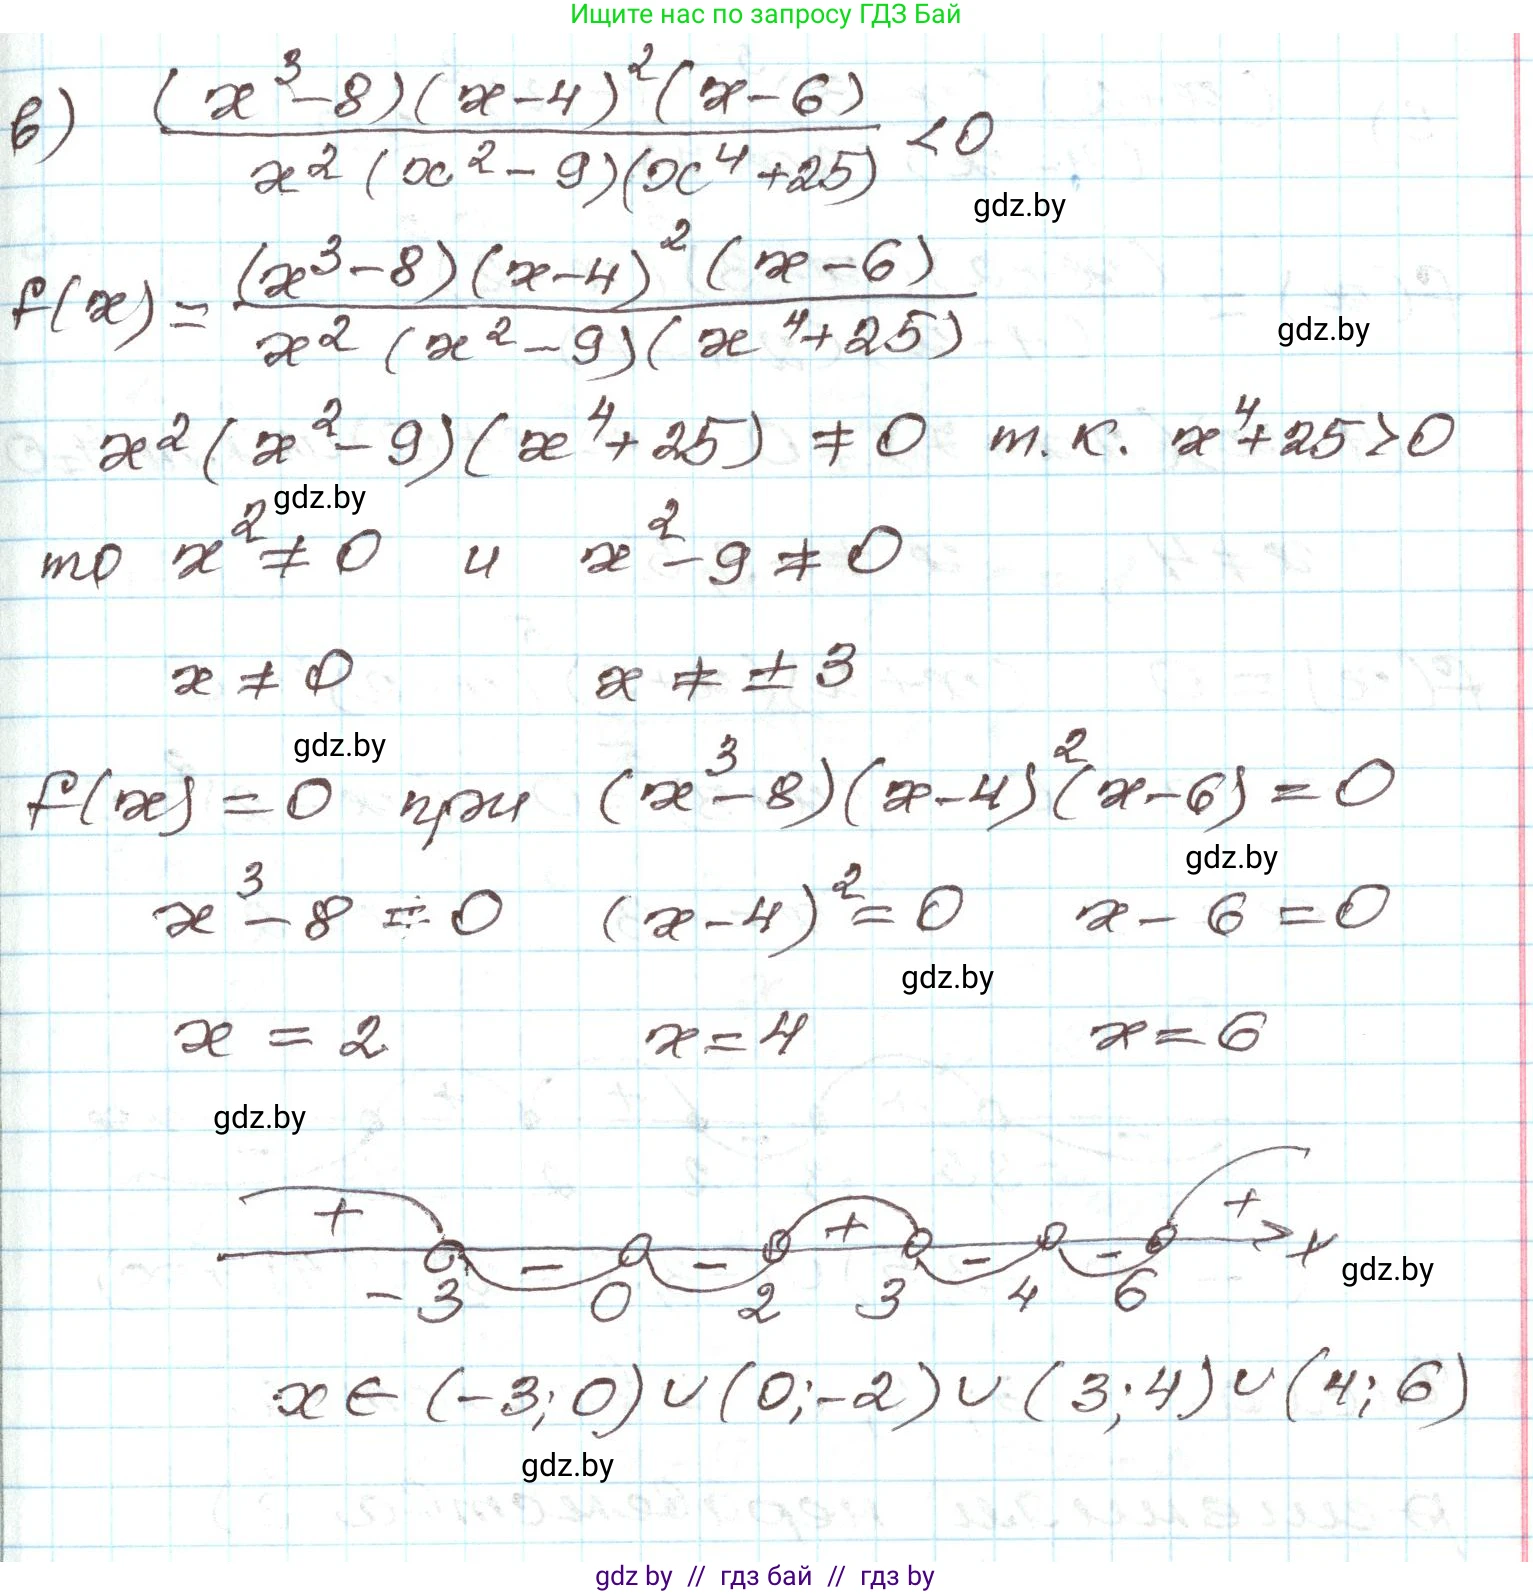 Ищите нас по запросу ГДЗ Бай
в) (x³-8)(x-4)²(x-6)
x²(x²-9)(x⁴+25) <0
gdz.by
f(x)= (x³-8)(x-4)²(x-6)
x²(x²-9)(x⁴+25)
gdz.by
x²(x²-9)(x⁴+25) ≠0 т.к. x⁴+25>0
gdz.by
то x²≠0 и x²-9≠0
x≠0 x≠±3
gdz.by
f(x)=0 при (x³-8)(x-4)²(x-6)=0
gdz.by
x³-8=0 (x-4)²=0 x-6=0
gdz.by
x=2 x=4 x=6
gdz.by
+ - - + - - + x
-3 0 2 3 4 6
gdz.by
x∈(-3;0)∪(0;-2)∪(3;4)∪(4;6)
gdz.by
gdz by // гдз бай // гдз by